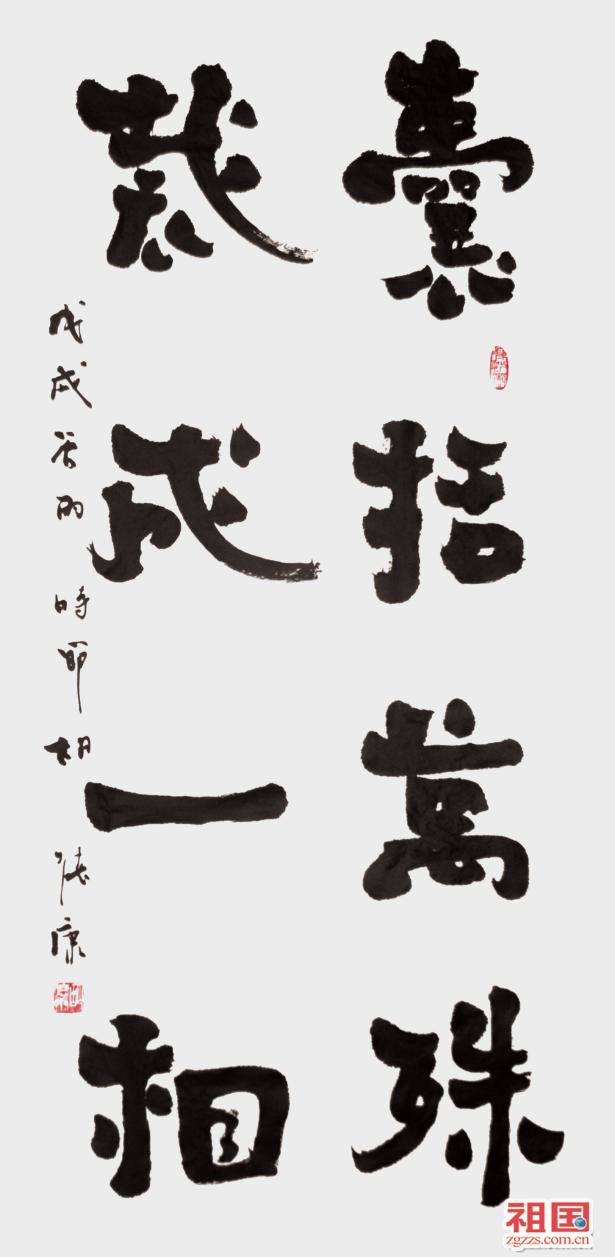 囊括萬殊
裁成一相
戊戌谷雨時節胡抗康
祖国
zgzzs.com.cn